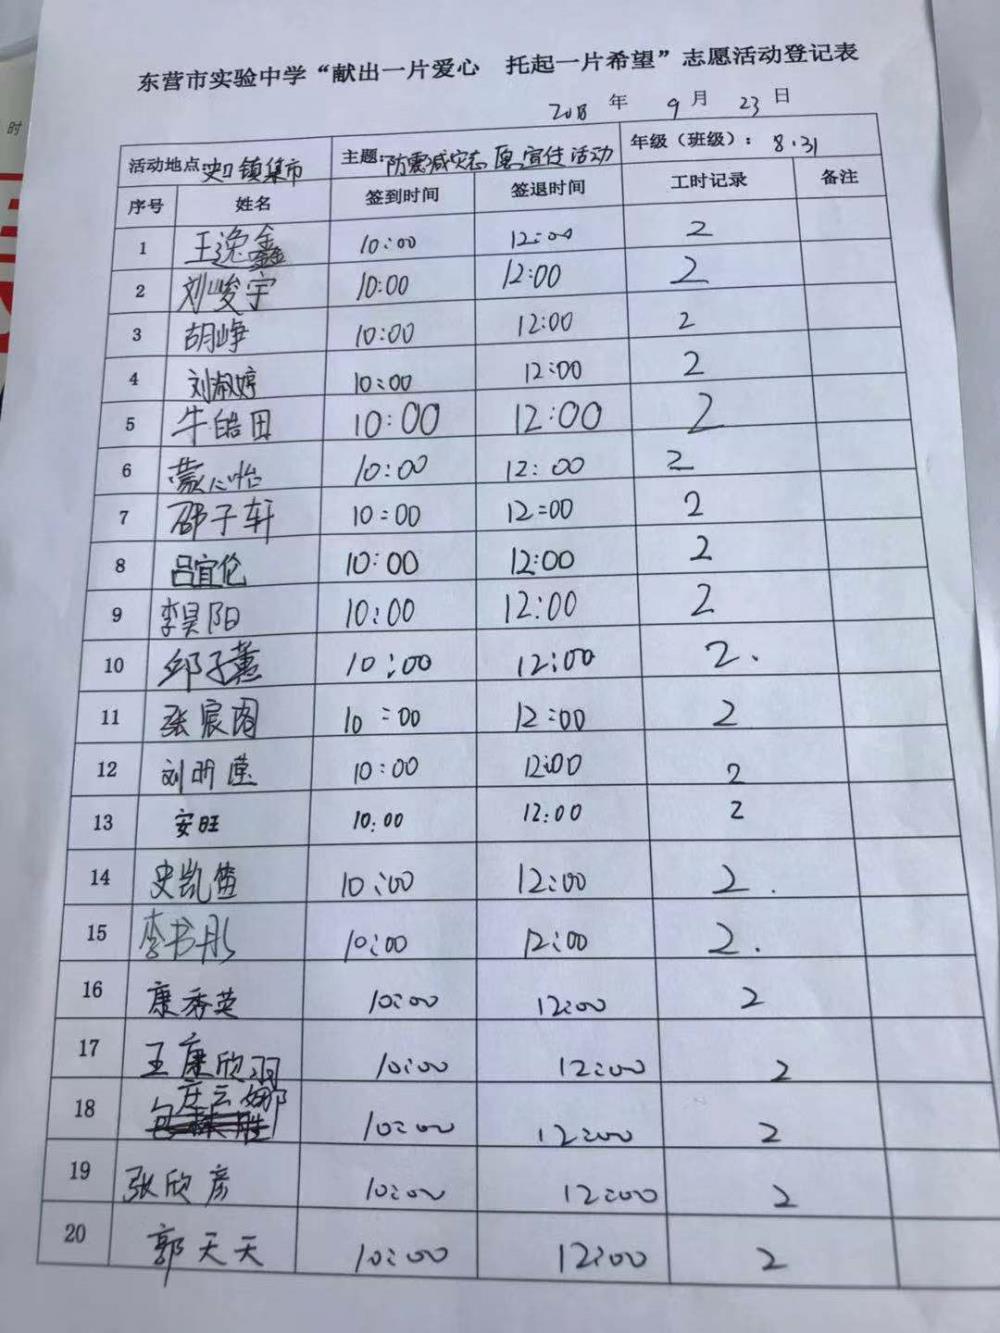 时
东营市实验中学“献出一片爱心 托起一片希望”志愿活动登记表
2018 年 9 月 23 日
活动地点 史口镇集市 主题: 防震减灾志愿宣传活动 年级（班级）: 8.31
序号 姓名 签到时间 签退时间 工时记录 备注
1 王逸鑫 10:00 12:00 2
2 刘峻宇 10:00 12:00 2
3 胡峥 10:00 12:00 2
4 刘淑婷 10:00 12:00 2
5 牛皓田 10:00 12:00 2
6 蒙心怡 10:00 12:00 2
7 邵子轩 10:00 12:00 2
8 吕宜伦 10:00 12:00 2
9 李昊阳 10:00 12:00 2
10 邱子薰 10:00 12:00 2.
11 张宸阁 10:00 12:00 2
12 刘明 10:00 12:00 2
13 安旺 10:00 12:00 2
14 史凯 10:00 12:00 2.
15 李书彤 10:00 12:00 2.
16 康秀英 10:00 12:00 2
17 王康欣羽 10:00 12:00 2
18 庄云娜 10:00 12:00 2
19 张欣彦 10:00 12:00 2
20 郭天天 10:00 12:00 2